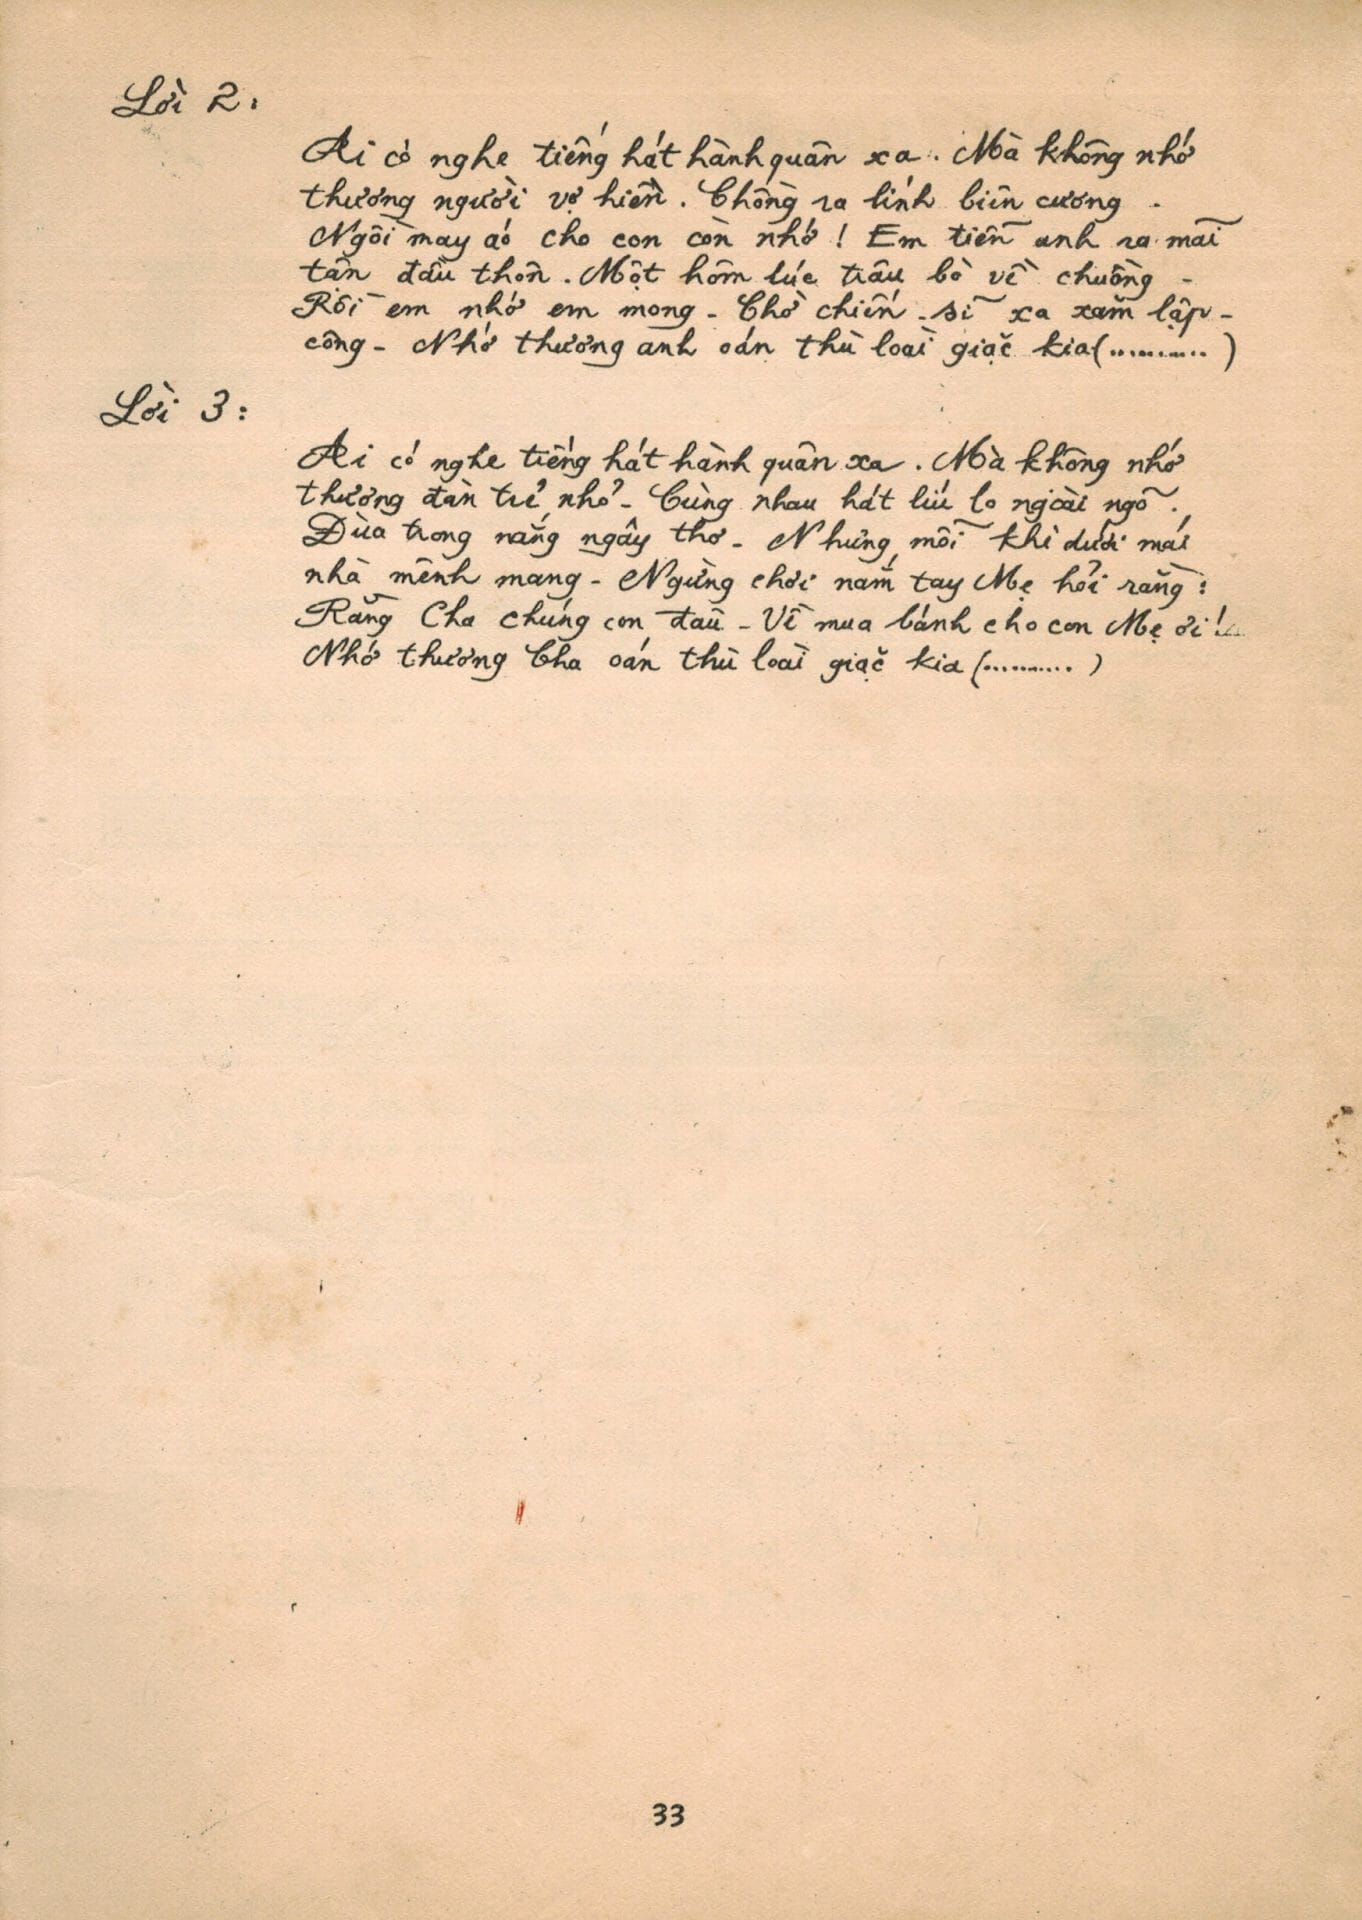 Lời 2:
Ai có nghe tiếng hát hành quân xa. Mà không nhớ
thương người vợ hiền. Chồng ra lính biên cương.
Ngồi may áo cho con còn nhớ! Em tiễn anh ra mãi
tận đầu thôn. Một hôm lúc trâu bò về chuồng -
Rồi em nhớ em mong - Chờ chiến - sĩ xa xăm lập -
công - Nhớ thương anh oán thù loài giặc kia (...........)
Lời 3:
Ai có nghe tiếng hát hành quân xa. Mà không nhớ
thương đàn trẻ nhỏ - Cùng nhau hát líu lo ngoài ngõ.
Đùa trong nắng ngây thơ - Nhưng mỗi khi dưới mái
nhà mênh mang - Ngừng chơi nắm tay Mẹ hỏi rằng:
Rằng Cha chúng con đâu - Về mua bánh cho con Mẹ ơi!
Nhớ thương Cha oán thù loài giặc kia (..........)
33